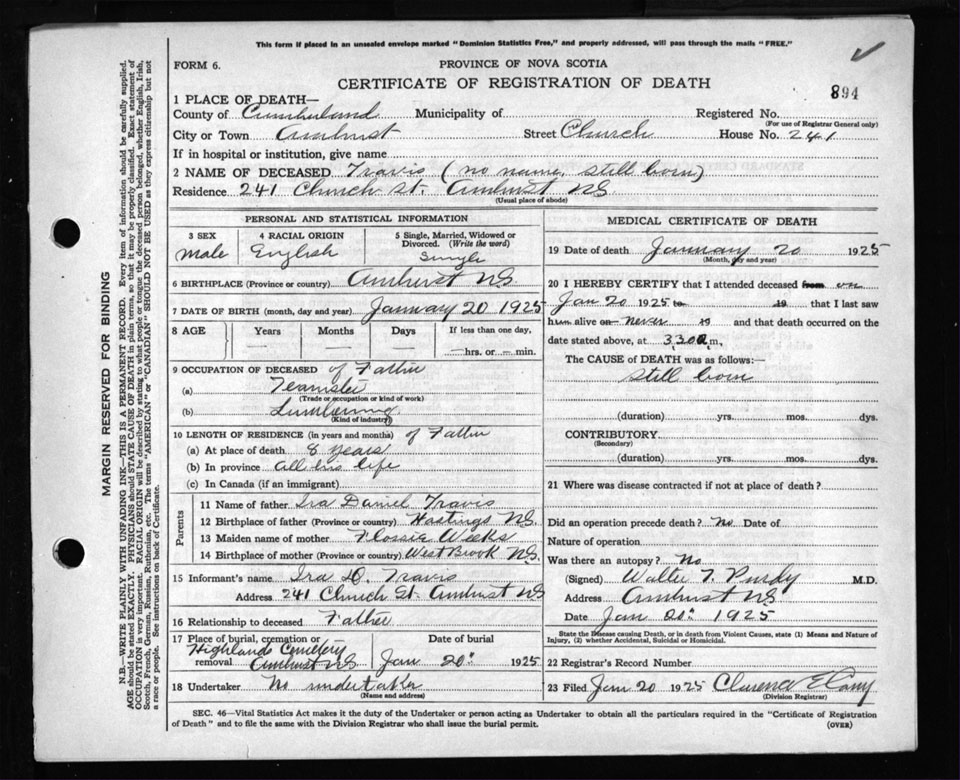 This form if placed in an unsealed envelope marked "Dominion Statistics Free," and properly addressed, will pass through the mails "FREE."
FORM 6.
PROVINCE OF NOVA SCOTIA
CERTIFICATE OF REGISTRATION OF DEATH
894
1 PLACE OF DEATH—
County of Cumberland Municipality of Registered No.
(For use of Registrar General only)
City or Town Amherst Street Church House No. 241
If in hospital or institution, give name
2 NAME OF DECEASED Travis (no name, still born)
Residence 241 Church St. Amherst NS
(Usual place of abode)
PERSONAL AND STATISTICAL INFORMATION
3 SEX 4 RACIAL ORIGIN 5 Single, Married, Widowed or Divorced. (Write the word)
Male English Single
6 BIRTHPLACE (Province or country) Amherst NS
7 DATE OF BIRTH (month, day and year) January 20 1925
8 AGE Years Months Days If less than one day,
— — — — hrs. or — min.
9 OCCUPATION OF DECEASED of Father
(a) Teamster
(Trade or occupation or kind of work)
(b) Lumbering
(Kind of industry)
10 LENGTH OF RESIDENCE (in years and months) of Father
(a) At place of death 8 years
(b) In province all his life
(c) In Canada (if an immigrant)
Parents
11 Name of father Ira Daniel Travis
12 Birthplace of father (Province or country) Hastings N.S.
13 Maiden name of mother Flossie Weeks
14 Birthplace of mother (Province or country) West Brook N.S.
15 Informant's name Ira D. Travis
Address 241 Church St. Amherst NS
16 Relationship to deceased Father
17 Place of burial, cremation or removal Highlands Cemetery Amherst NS
Date of burial Jan 20th 1925
18 Undertaker No undertaker
(Name and address)
MEDICAL CERTIFICATE OF DEATH
19 Date of death January 20 1925
(Month, day and year)
20 I HEREBY CERTIFY that I attended deceased from on
Jan 20 1925 to 19 that I last saw
him alive on never 19 and that death occurred on
date stated above, at 3.30 a m,
The CAUSE of DEATH was as follows:—
Still born
(duration) yrs. mos. dys.
CONTRIBUTORY
(Secondary)
(duration) yrs. mos. dys.
21 Where was disease contracted if not at place of death?
Did an operation precede death? No Date of
Nature of operation
Was there an autopsy? No
(Signed) Walter T. Purdy M.D.
Address Amherst NS
Date Jan 20th 1925
State the Disease causing Death, or in death from Violent Causes, state (1) Means and Nature of
Injury, (2) whether Accidental, Suicidal or Homicidal.
22 Registrar's Record Number
23 Filed Jan 20 1925 Clarence E
(Division Registrar)
SEC. 46—Vital Statistics Act makes it the duty of the Undertaker or person acting as Undertaker to obtain all the particulars required in the "Certificate of Registration
of Death" and to file the same with the Division Registrar who shall issue the burial permit.
(OVER)
MARGIN RESERVED FOR BINDING
N.B.—WRITE PLAINLY WITH UNFADING INK—THIS IS A PERMANENT RECORD. Every item of information should be carefully supplied.
AGE should be stated EXACTLY. PHYSICIANS should STATE CAUSE OF DEATH in plain terms, so that it may be properly classified. Exact statement of
OCCUPATION is very important. RACIAL ORIGIN will be described by stating to what people or tongue the deceased person belonged, whether English, Irish,
Scotch, French, German, Russian, Ruthenian, etc. The terms "AMERICAN" or "CANADIAN" SHOULD NOT BE USED as they express citizenship but not
a race or people. See instructions on back of Certificate.